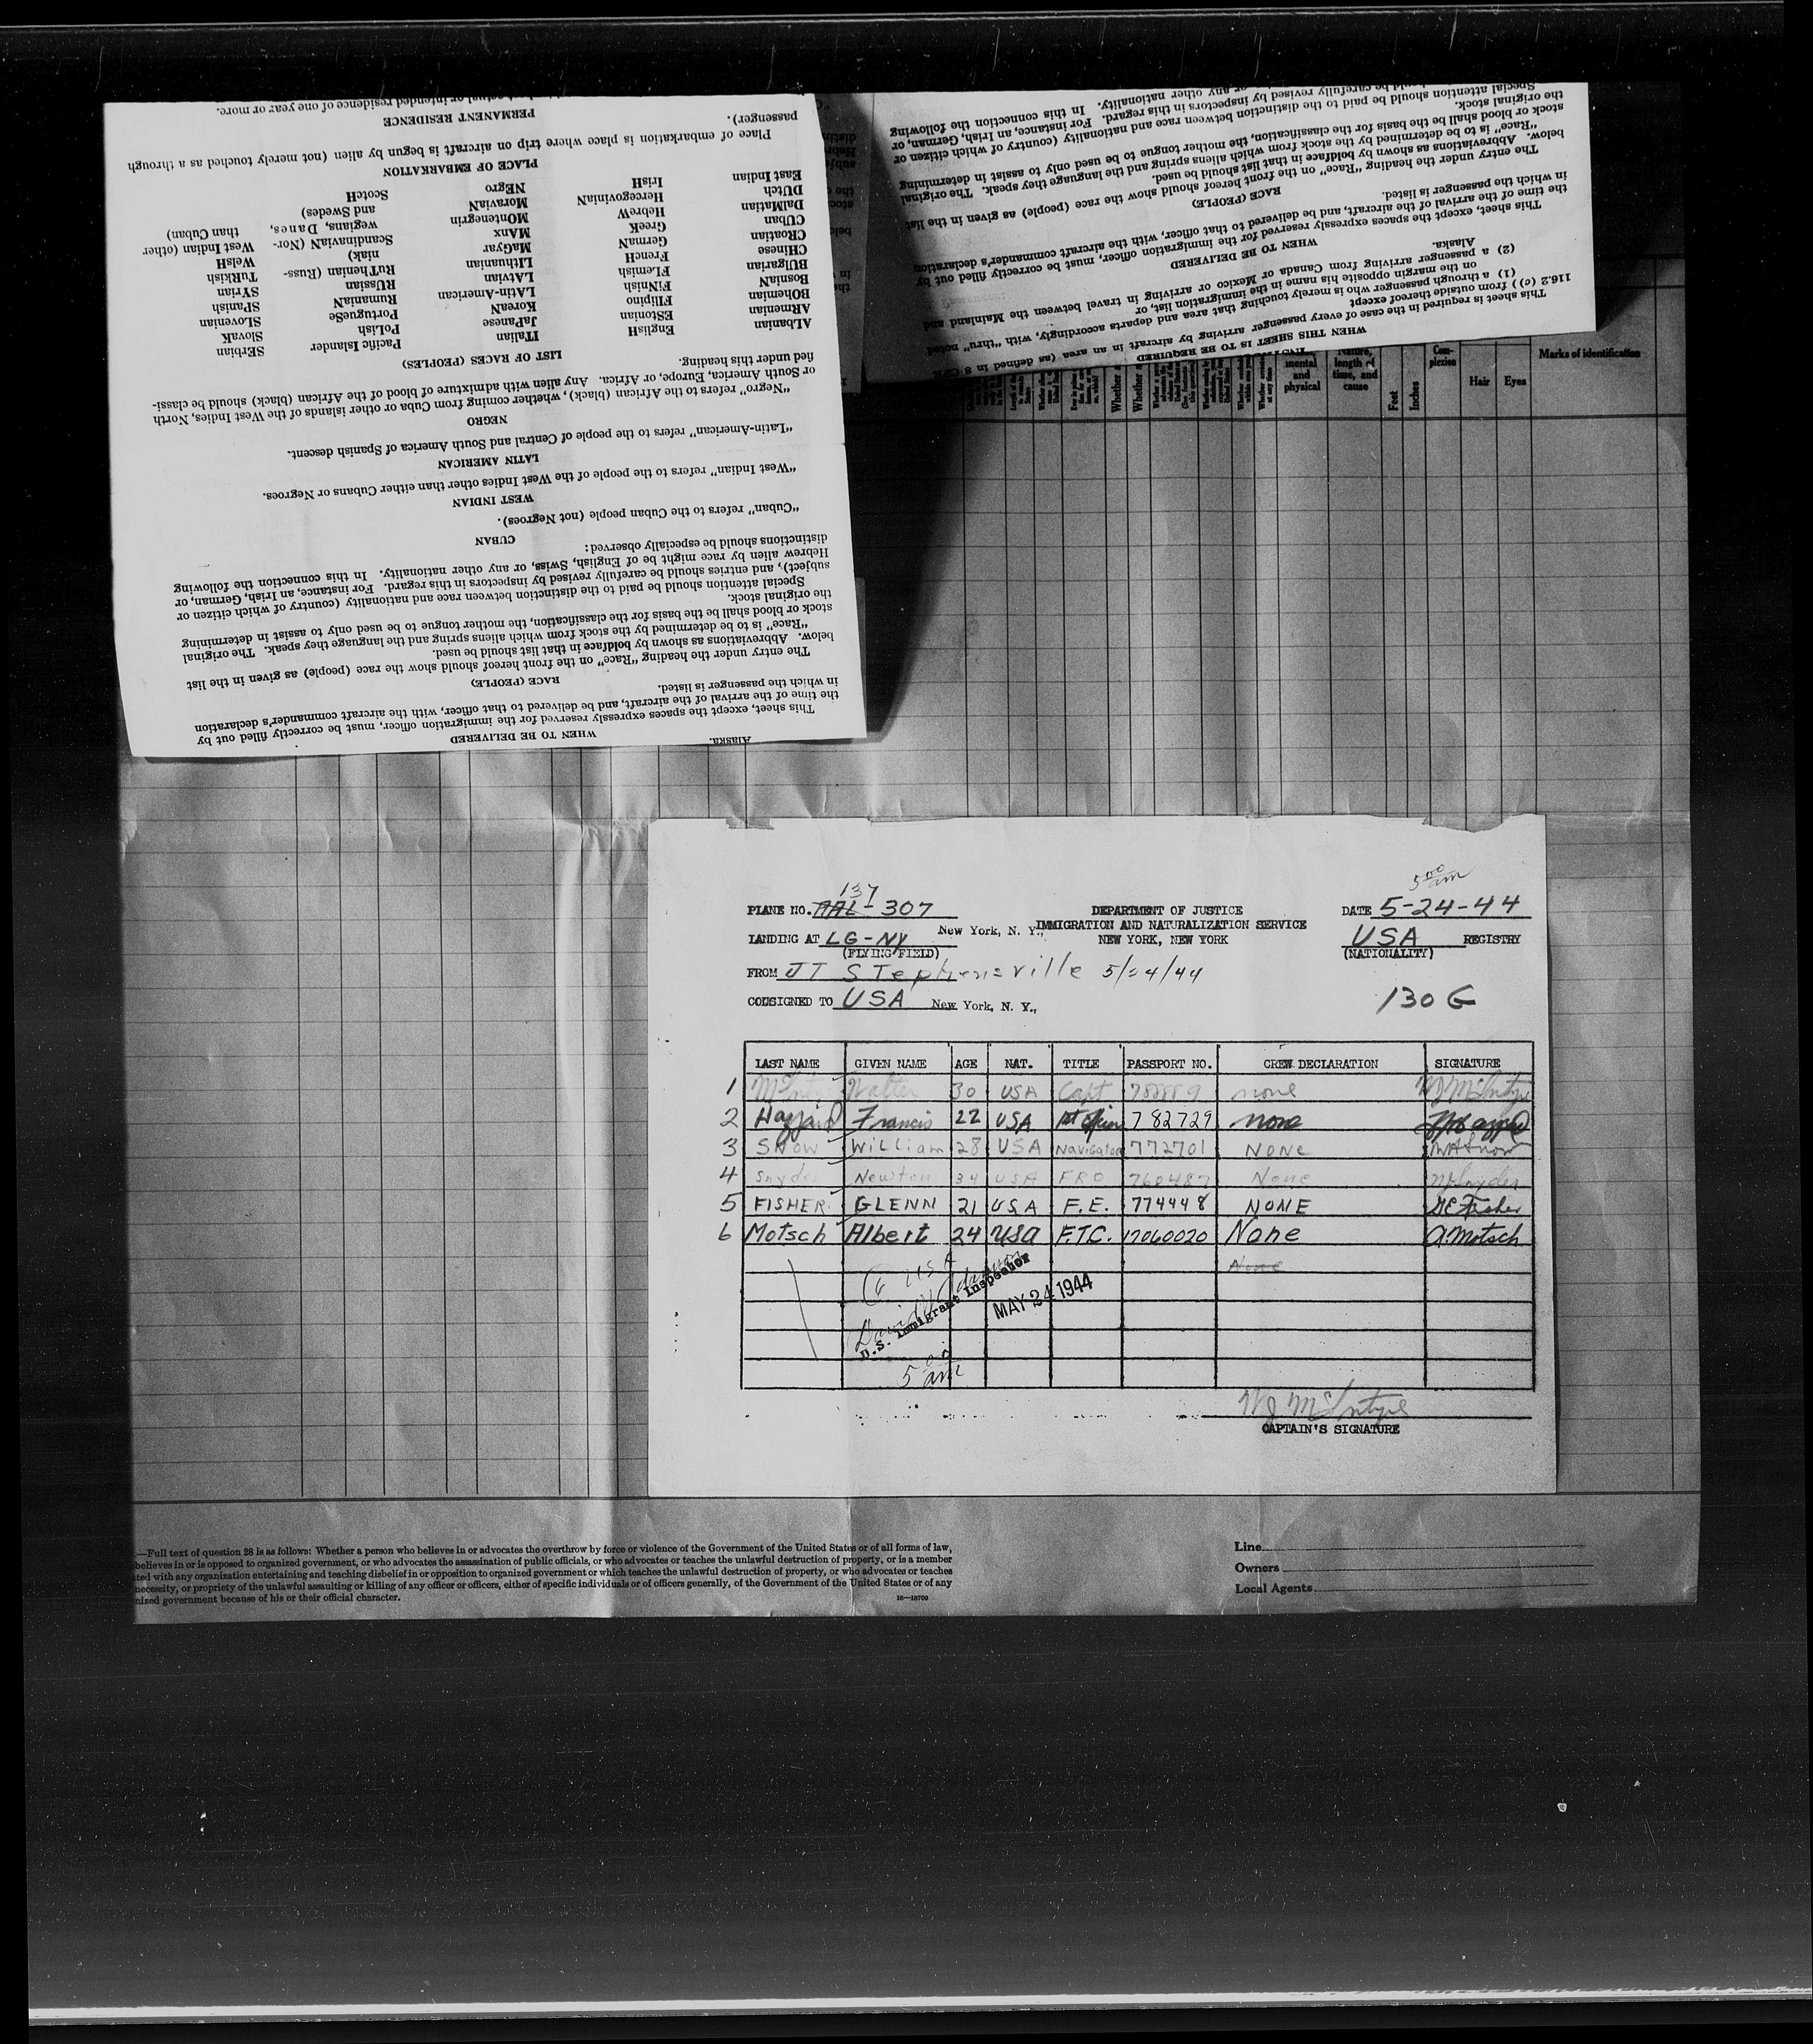 actual or intended residence of one year or more.
PERMANENT RESIDENCE
passenger).
Place of embarkation is place where trip on aircraft is begun by alien (not merely touched as a through
PLACE OF EMBARKATION
East Indian IrisH NEgro ScotcH
DUtch HercegovinIaN MoraviaN and Swedes)
DalMatian HebreW MOntenegrin wegians, Danes, than Cuban)
CUban GreeK MAnx ScandinaviaN (Nor- West Indian (other
CROatian GermaN MaGyar niak) WelsH
CHinese FrencH LIthuanian RuTHenian (Russ- TuRkish
BUlgarian FLemish LAtvian RUssian SYrian
BosniaN FiNnish LAtin-American RumaniaN SPanish
BOhemian FIlipino KoreaN PortuguеSe SLovenian
ARmenian EStonian JaPanese POlish SlovaK
ALbanian EnglisH ITalian Pacific Islander SErbian
LIST OF RACES (PEOPLES)
fied under this heading.
or South America, Europe, or Africa. Any alien with admixture of blood of the African (black) should be classi-
"Negro" refers to the African (black), whether coming from Cuba or other islands of the West Indies, North
NEGRO
"Latin-American" refers to the people of Central and South America of Spanish descent.
LATIN AMERICAN
"West Indian" refers to the people of the West Indies other than either Cubans or Negroes.
WEST INDIAN
"Cuban" refers to the Cuban people (not Negroes).
CUBAN
distinctions should be especially observed:
Hebrew alien by race might be of English, Swiss, or any other nationality. In this connection the following
subject), and entries should be carefully revised by inspectors in this regard. For instance, an Irish, German, or
Special attention should be paid to the distinction between race and nationality (country of which citizen or
the original stock.
stock or blood shall be the basis for the classification, the mother tongue to be used only to assist in determining
"Race" is to be determined by the stock from which aliens spring and the language they speak. The original
below. Abbreviations as shown by boldface in that list should be used.
The entry under the heading "Race" on the front hereof should show the race (people) as given in the list
RACE (PEOPLE)
in which the passenger is listed.
the time of the arrival of the aircraft, and be delivered to that officer, with the aircraft commander's declaration
This sheet, except the spaces expressly reserved for the immigration officer, must be correctly filled out by
WHEN TO BE DELIVERED
Alaska.
be carefully revised by inspectors in this regard. In this connection the following
Special attention should be paid to the distinction between race and nationality (country of which citizen or
the original stock.
stock or blood shall be the basis for the classification, the mother tongue to be used only to assist in determining
"Race" is to be determined by the stock from which aliens spring and the language they speak. The original
below. Abbreviations as shown by boldface in that list should be used.
The entry under the heading "Race" on the front hereof should show the race (people) as given in the list
RACE (PEOPLE)
in which the passenger is listed.
the time of the arrival of the aircraft, and be delivered to that officer, with the aircraft commander's declaration
This sheet, except the spaces expressly reserved for the immigration officer, must be correctly filled out by
WHEN TO BE DELIVERED
Alaska.
(2) a passenger arriving from Canada or Mexico or arriving in travel between the Mainland and
on the margin opposite his name in the immigration list, or
(1) a through passenger who is merely touching that area and departs accordingly, with "thru" noted
116.2 (c)) from outside thereof except
This sheet is required in the case of every passenger arriving by aircraft in an area (as defined in 8 CFR
WHEN THIS SHEET IS TO BE REQUIRED
mental and physical
Nature, length of time, and cause
Feet
Inches
Com-plexion
Hair
Eyes
Marks of identification
5 00 am
137
PLANE NO. AAL-307
DEPARTMENT OF JUSTICE
DATE 5-24-44
LANDING AT LG-NY New York, N. Y., IMMIGRATION AND NATURALIZATION SERVICE
USA REGISTRY
(FLYING FIELD) NEW YORK, NEW YORK
(NATIONALITY)
FROM JT Stephensville 5/24/44
CONSIGNED TO USA New York, N. Y.,
130 G
LAST NAME GIVEN NAME AGE NAT. TITLE PASSPORT NO. CREW DECLARATION SIGNATURE
1 McIntyre Walter 30 USA Capt none WJ McIntyre
2 Francis 22 USA 782729 none
3 Snow William 28 USA Navigator 772701 NONE WA Snow
4 Snyder Newton 34 USA FRO 760487 None N Snyder
5 FISHER GLENN 21 USA F.E. 774448 NONE GE Fisher
6 Motsch Albert 24 USA F.T.C. 12060020 None A. Motsch
None
6 USA
U.S. Immigrant Inspector
MAY 24 1944
5 00 am
WJ McIntyre
CAPTAIN'S SIGNATURE
.—Full text of question 28 is as follows: Whether a person who believes in or advocates the overthrow by force or violence of the Government of the United States or of all forms of law,
believes in or is opposed to organized government, or who advocates the assassination of public officials, or who advocates or teaches the unlawful destruction of property, or is a member
ted with any organization entertaining and teaching disbelief in or opposition to organized government or which teaches the unlawful destruction of property, or who advocates or teaches
necessity, or propriety of the unlawful assaulting or killing of any officer or officers, either of specific individuals or of officers generally, of the Government of the United States or of any
nized government because of his or their official character.
16—18709
Line
Owners
Local Agents